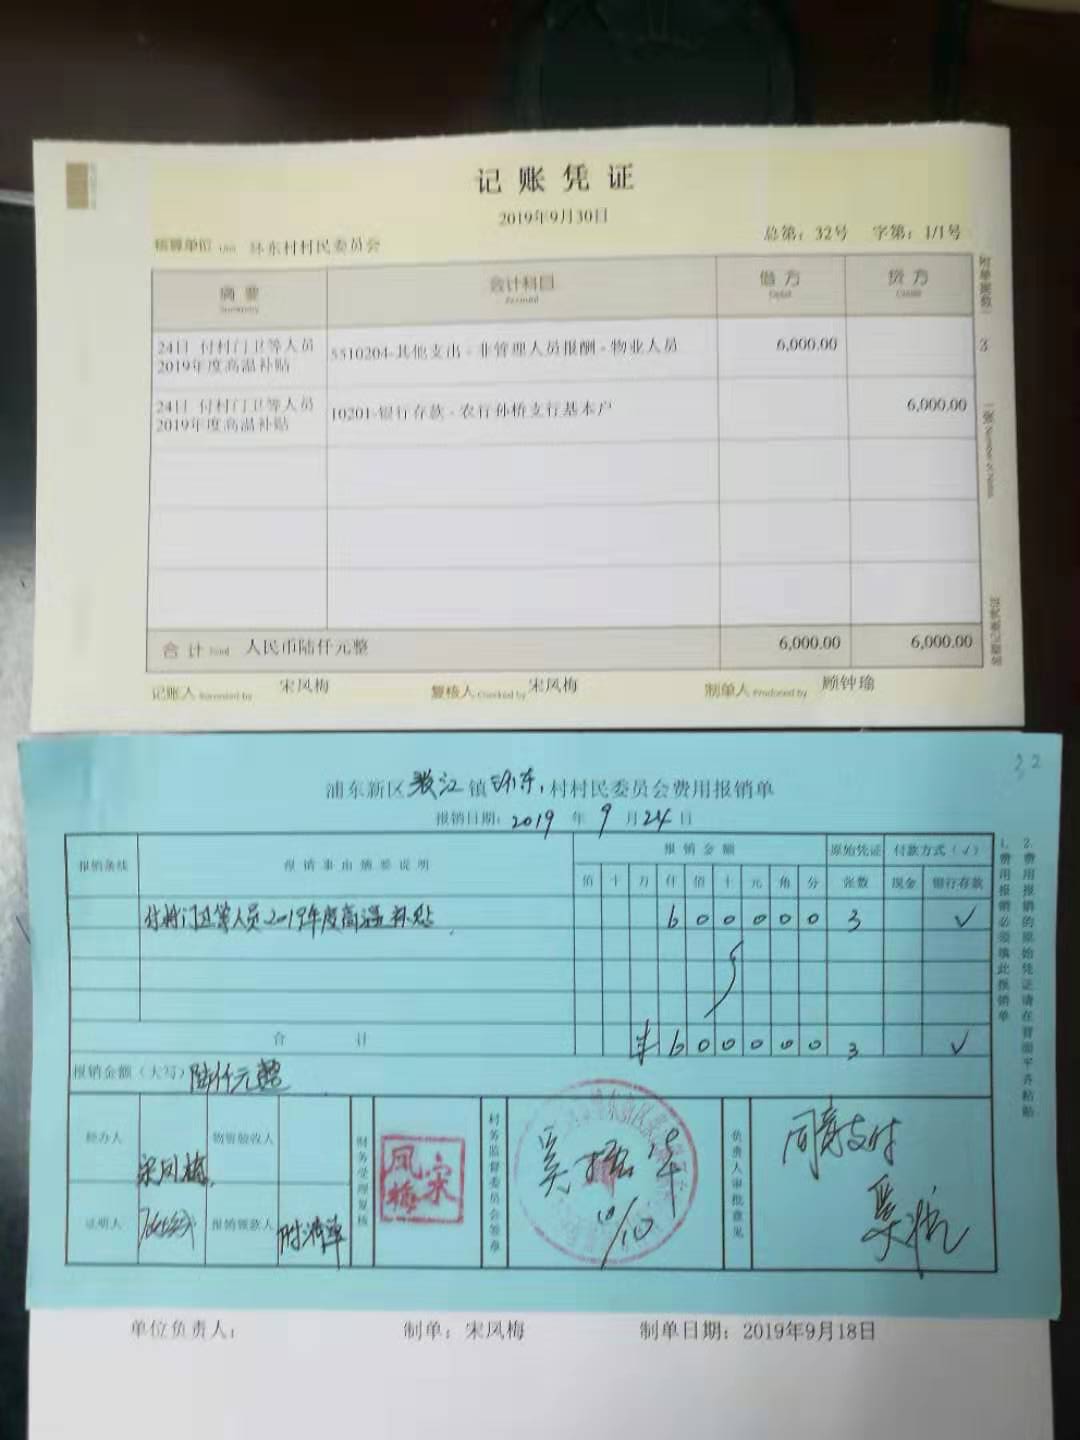 记账凭证
2019年9月30日
核算单位 Unit 环东村村民委员会 总第：32号 字第：1/1号
摘要 会计科目 借方 贷方
Summary Account Debit Credit
24日 付村门卫等人员2019年度高温补贴 5510204-其他支出-非管理人员报酬-物业人员 6,000.00
24日 付村门卫等人员2019年度高温补贴 10201-银行存款-农行孙桥支行基本户 6,000.00
合计 Total 人民币陆仟元整 6,000.00 6,000.00
记账人 Recorded by 宋凤梅 复核人 Checked by 宋凤梅 制单人 Produced by 顾钟瑜
附单据数 3 张
金额记账凭证
32
浦东新区张江镇环东村村民委员会费用报销单
报销日期：2019年9月24日
报销条线 报销事由摘要说明 报销金额 原始凭证 付款方式（✓）
佰 十 万 仟 佰 十 元 角 分 张数 现金 银行存款
付村门卫等人员2019年度高温补贴 6 0 0 0 0 0 3 ✓
合计 ¥ 6 0 0 0 0 0 3 ✓
报销金额（大写） 陆仟元整
经办人 宋凤梅 物资验收人
证明人 报销领款人 附清单
财务受理复核 凤梅宋
村务监督委员会签章 10/10
负责人审批意见 同意支付
1.费用报销必须填此报销单
2.费用报销的原始凭证请在背面平齐粘贴
单位负责人： 制单：宋凤梅 制单日期：2019年9月18日